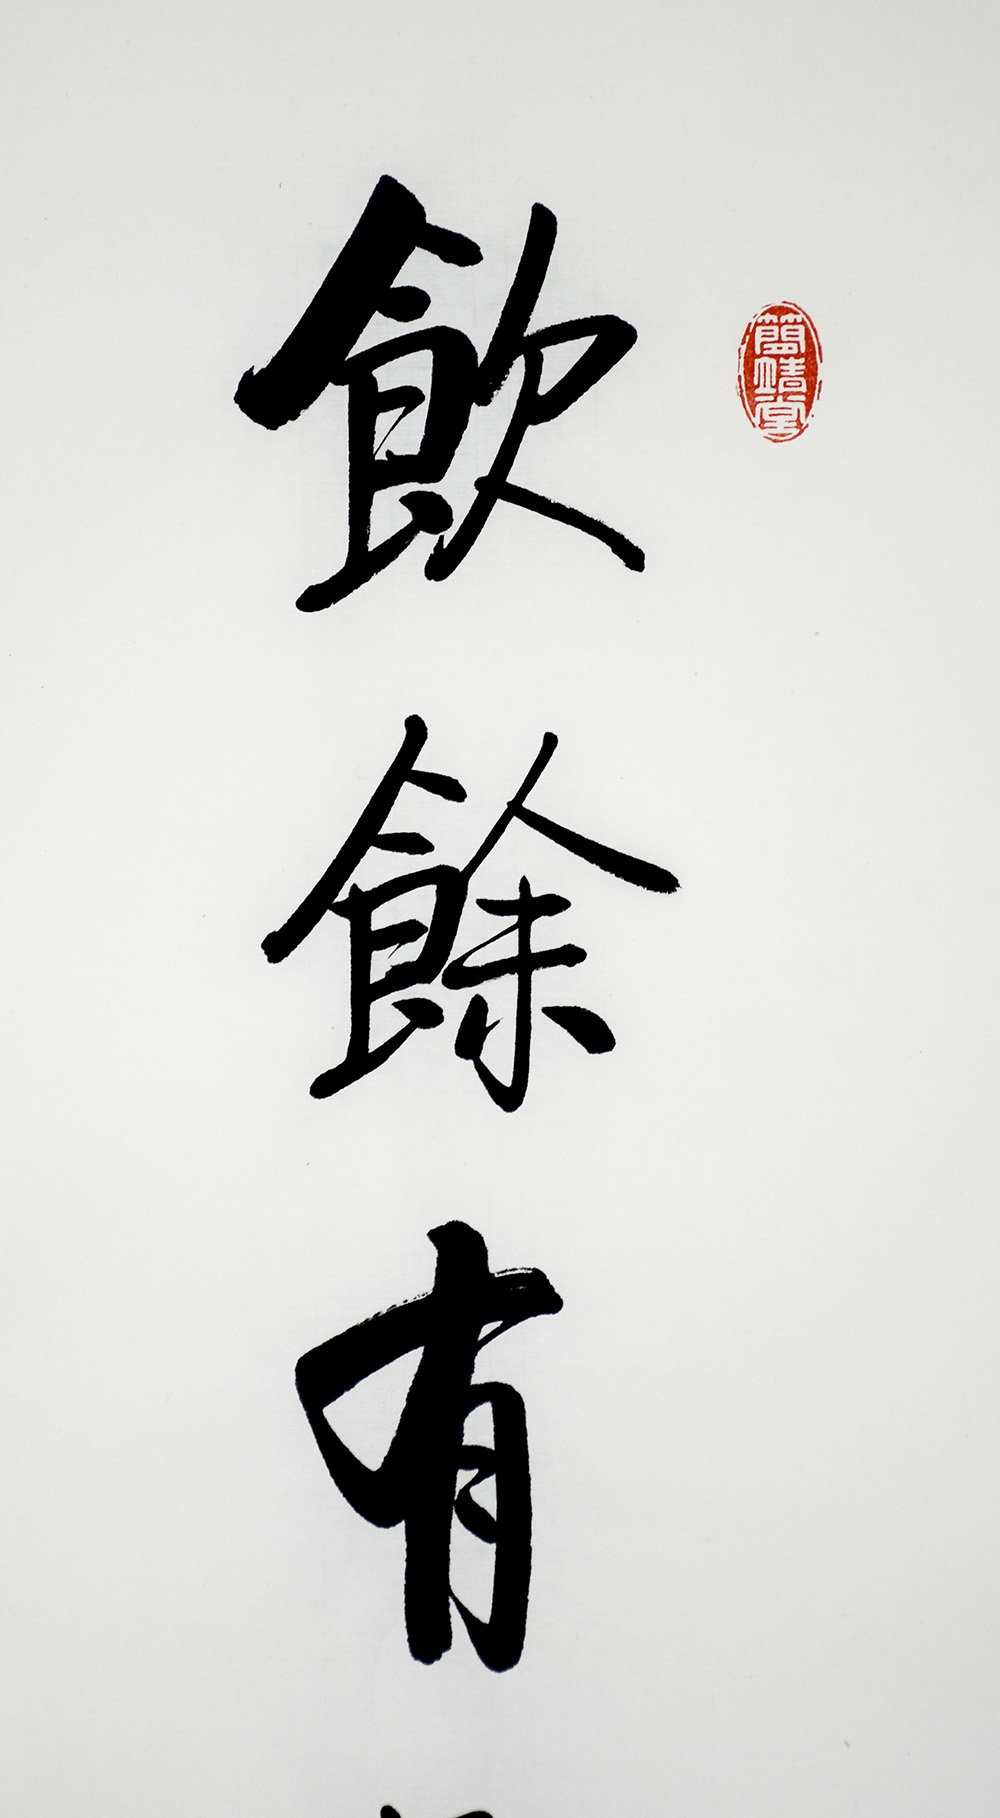 飲餘有
簡靖堂